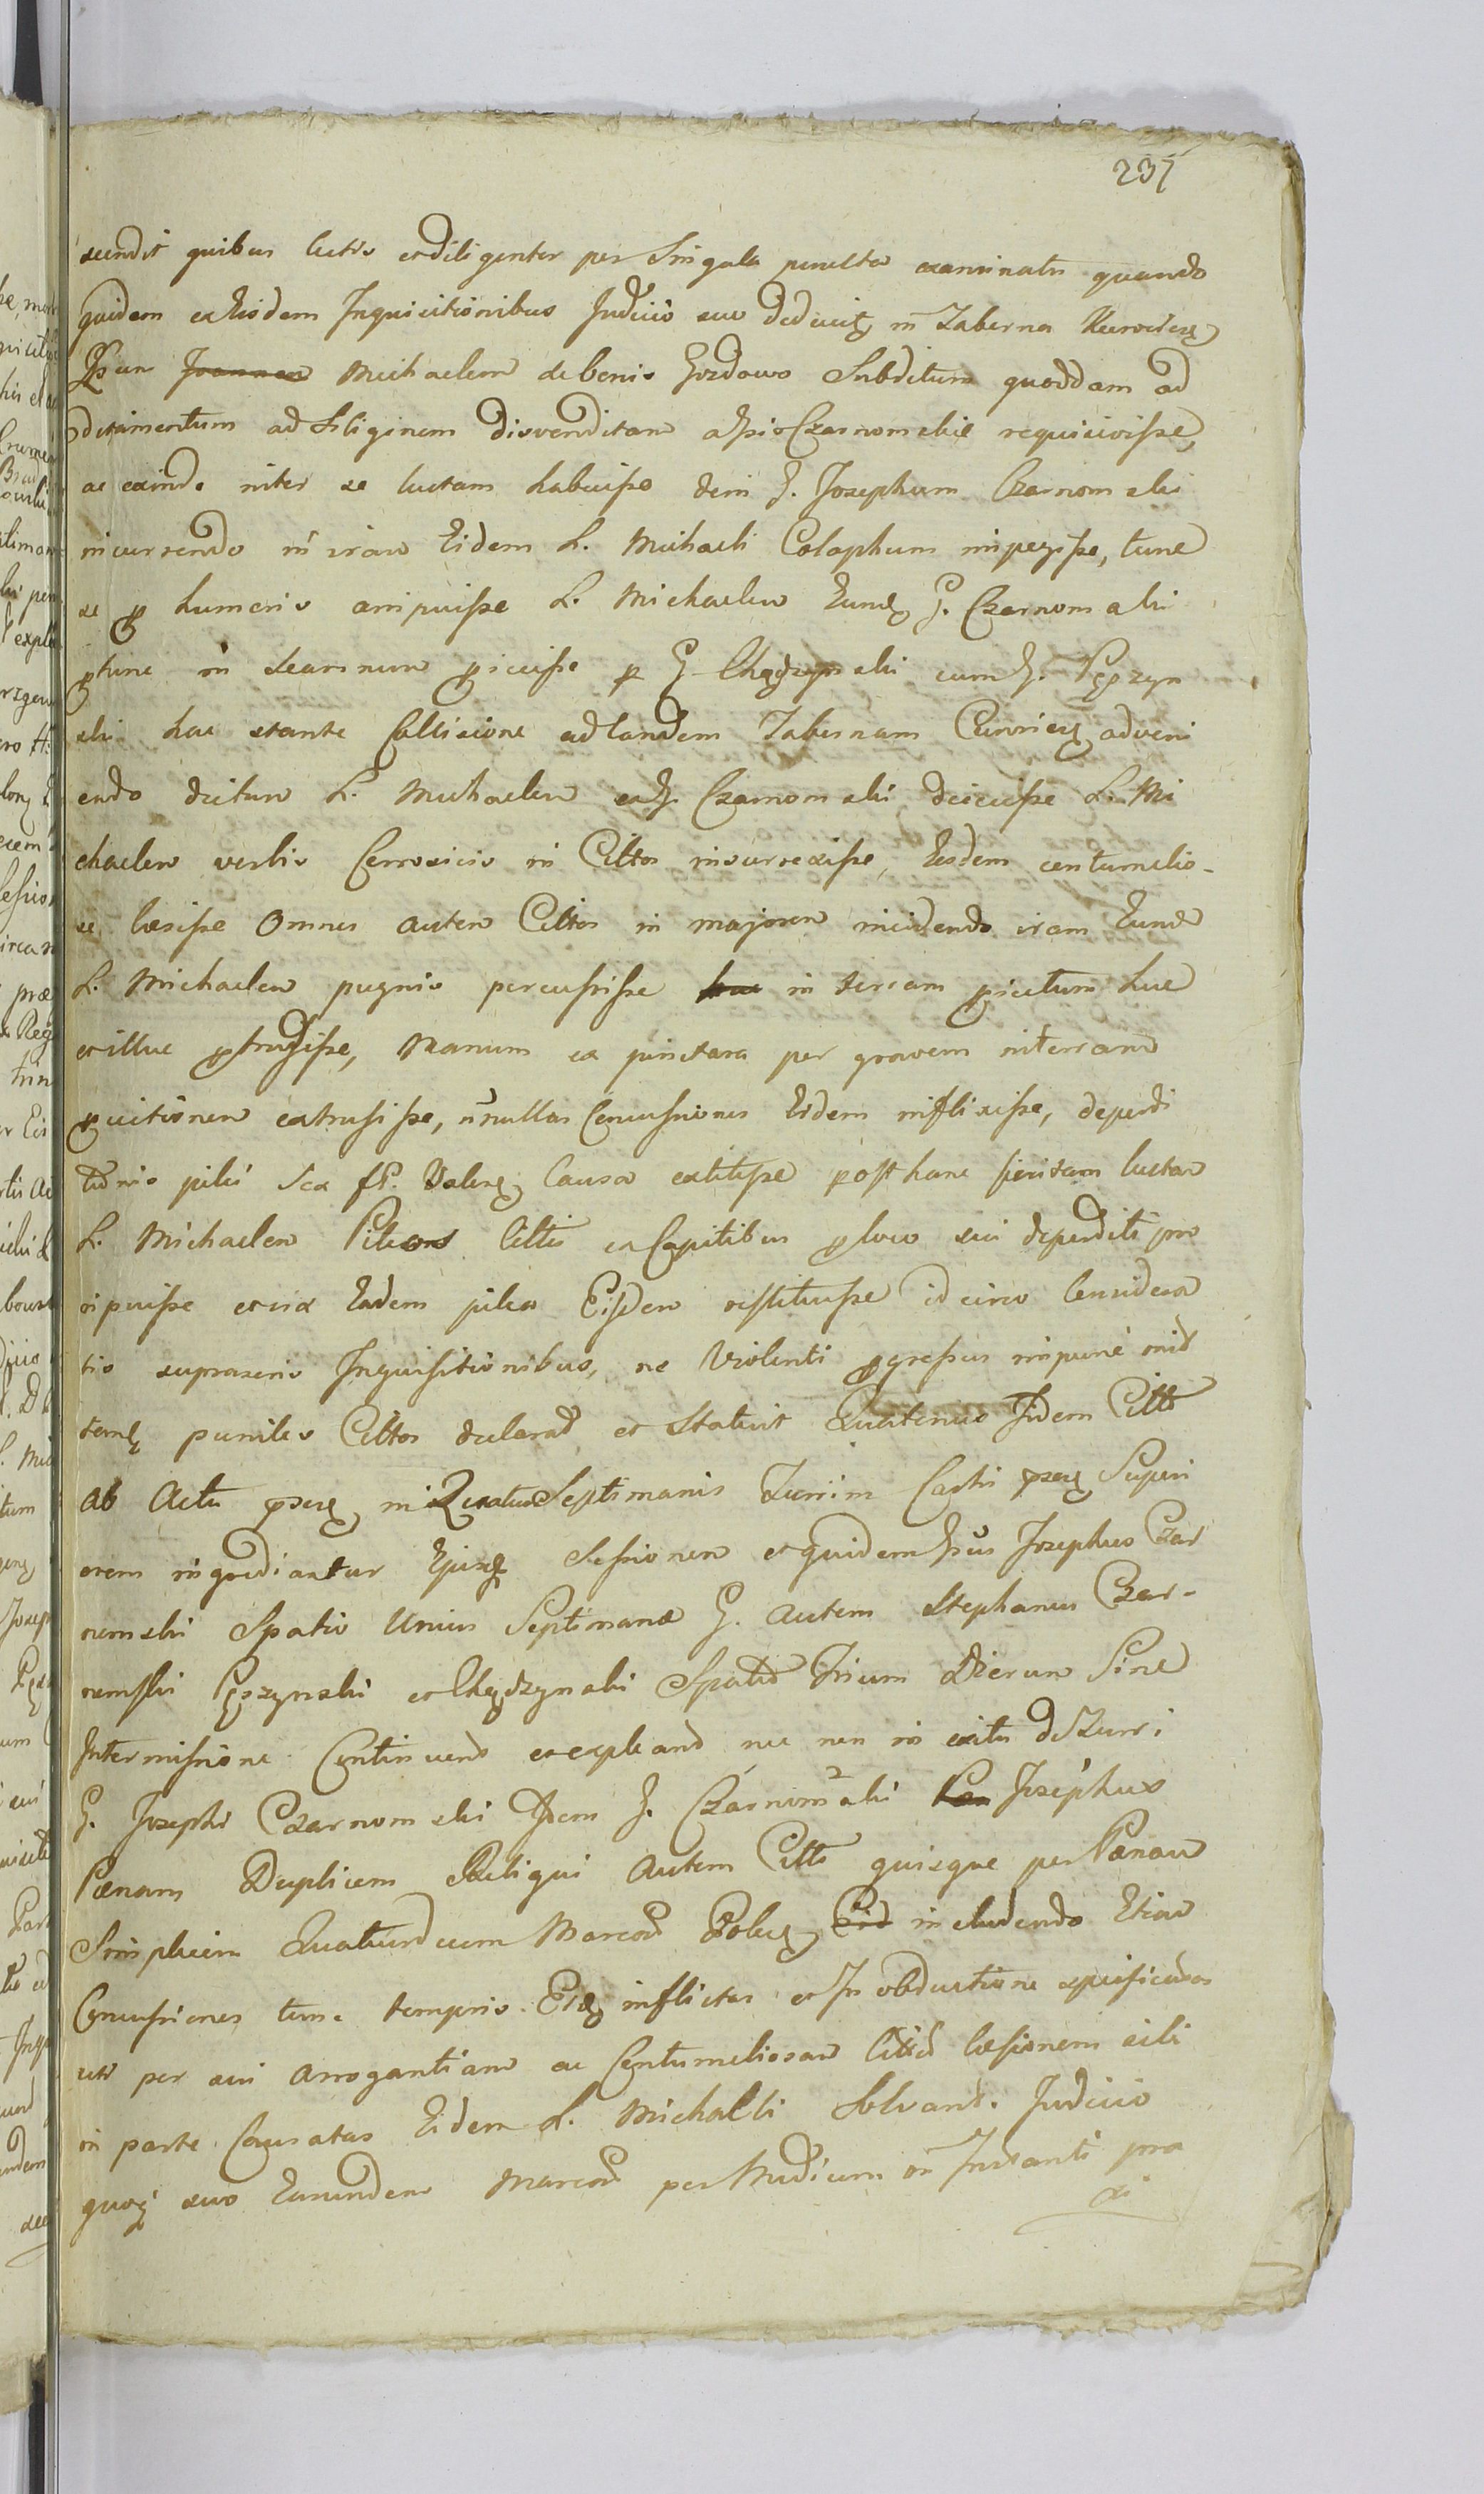 237
scendit quibus lectis et diligenter per Singula puncta examinatis quando
quidem ex Eisdem Inquisitionibus Judicio suo deducitę in Taberna
Joannem Michaelem de bonis Gozdowo Subditum quoddam ad
ditamentum ad Siliginem disvenditam a Czarnomskie requisivisse,
ac exinde inter se luctam habuisse dein G. Josephum Czarnomski
incurrendo in iram Eidem L. Michaeli Colaphum impegisse, tunc
se p humeris arripuisse L. Michaelem Eundę G. Czarnomski
in Scamnum pjicisse p G Chądzynski cum G. Pęszyn
ski hac stante Collisione ad tandem Tabernam adveni
endo dictum L. Michaelem ex G. Czarnomski dejecisse L. Mi
chaelem verbis in Citтos insurrexisse, Eosdem contumelio-
se læsisse Omnes autem Cittos in majorem incidendo iram Eund
L. Michaelem pugnis percussisse huc in terram pjectum huc
et illuc ptrusisse, Manum ex junctura per gravem in terram
pjectionem extrusisse, nonnullas Concussiones Eidem inflixisse, deperdi
tionis pilei Sex fl. Valenę Causa extitisse post hanc finitam luctam
L. Michaelem Pileos Cittis ex Capitibus p loco sui deperditi pro
ripuisse et via Eadem pilea Eisdem restituisse idcirco Considera
tis suprascris Inquisitionibus, ne Violenti pgressus impune
temę punitos Cittos declarad et Statuit Quatenus Iidem Citti
Ab Actu psenę in Quatuor Septimanis Turrim Castri psenę Superi
orem ingrediantur Ejusqę Sessionem et quidem Gsus Josephus Czar
nomski Spatio Unius Septimanæ G. autem Stephanus Czar-
nomski Pęszynski et Chądzynski Spatio Trium Dierum Sine
Intermissione Continuend et expleand nec non in exitu de Turri
G. Josephi Czarnomski Idem G. Czarnomski Josephus
Pænam Duplicem Reliqui autem Citti quisque per Pænam
Simplicem Quatuordecim Marcar Policę includendo Etiam
Concussiones tunc temporis Eidę inflictas et In obductione specificatas
uti per sui arrogantiam ac Contumeliosam Cittor læsionem sibi
in parte Causatas Eidem L. Michaeli Solvant. Judicio
quoqę suo Earundem Marcar per Medium in Instanti pro